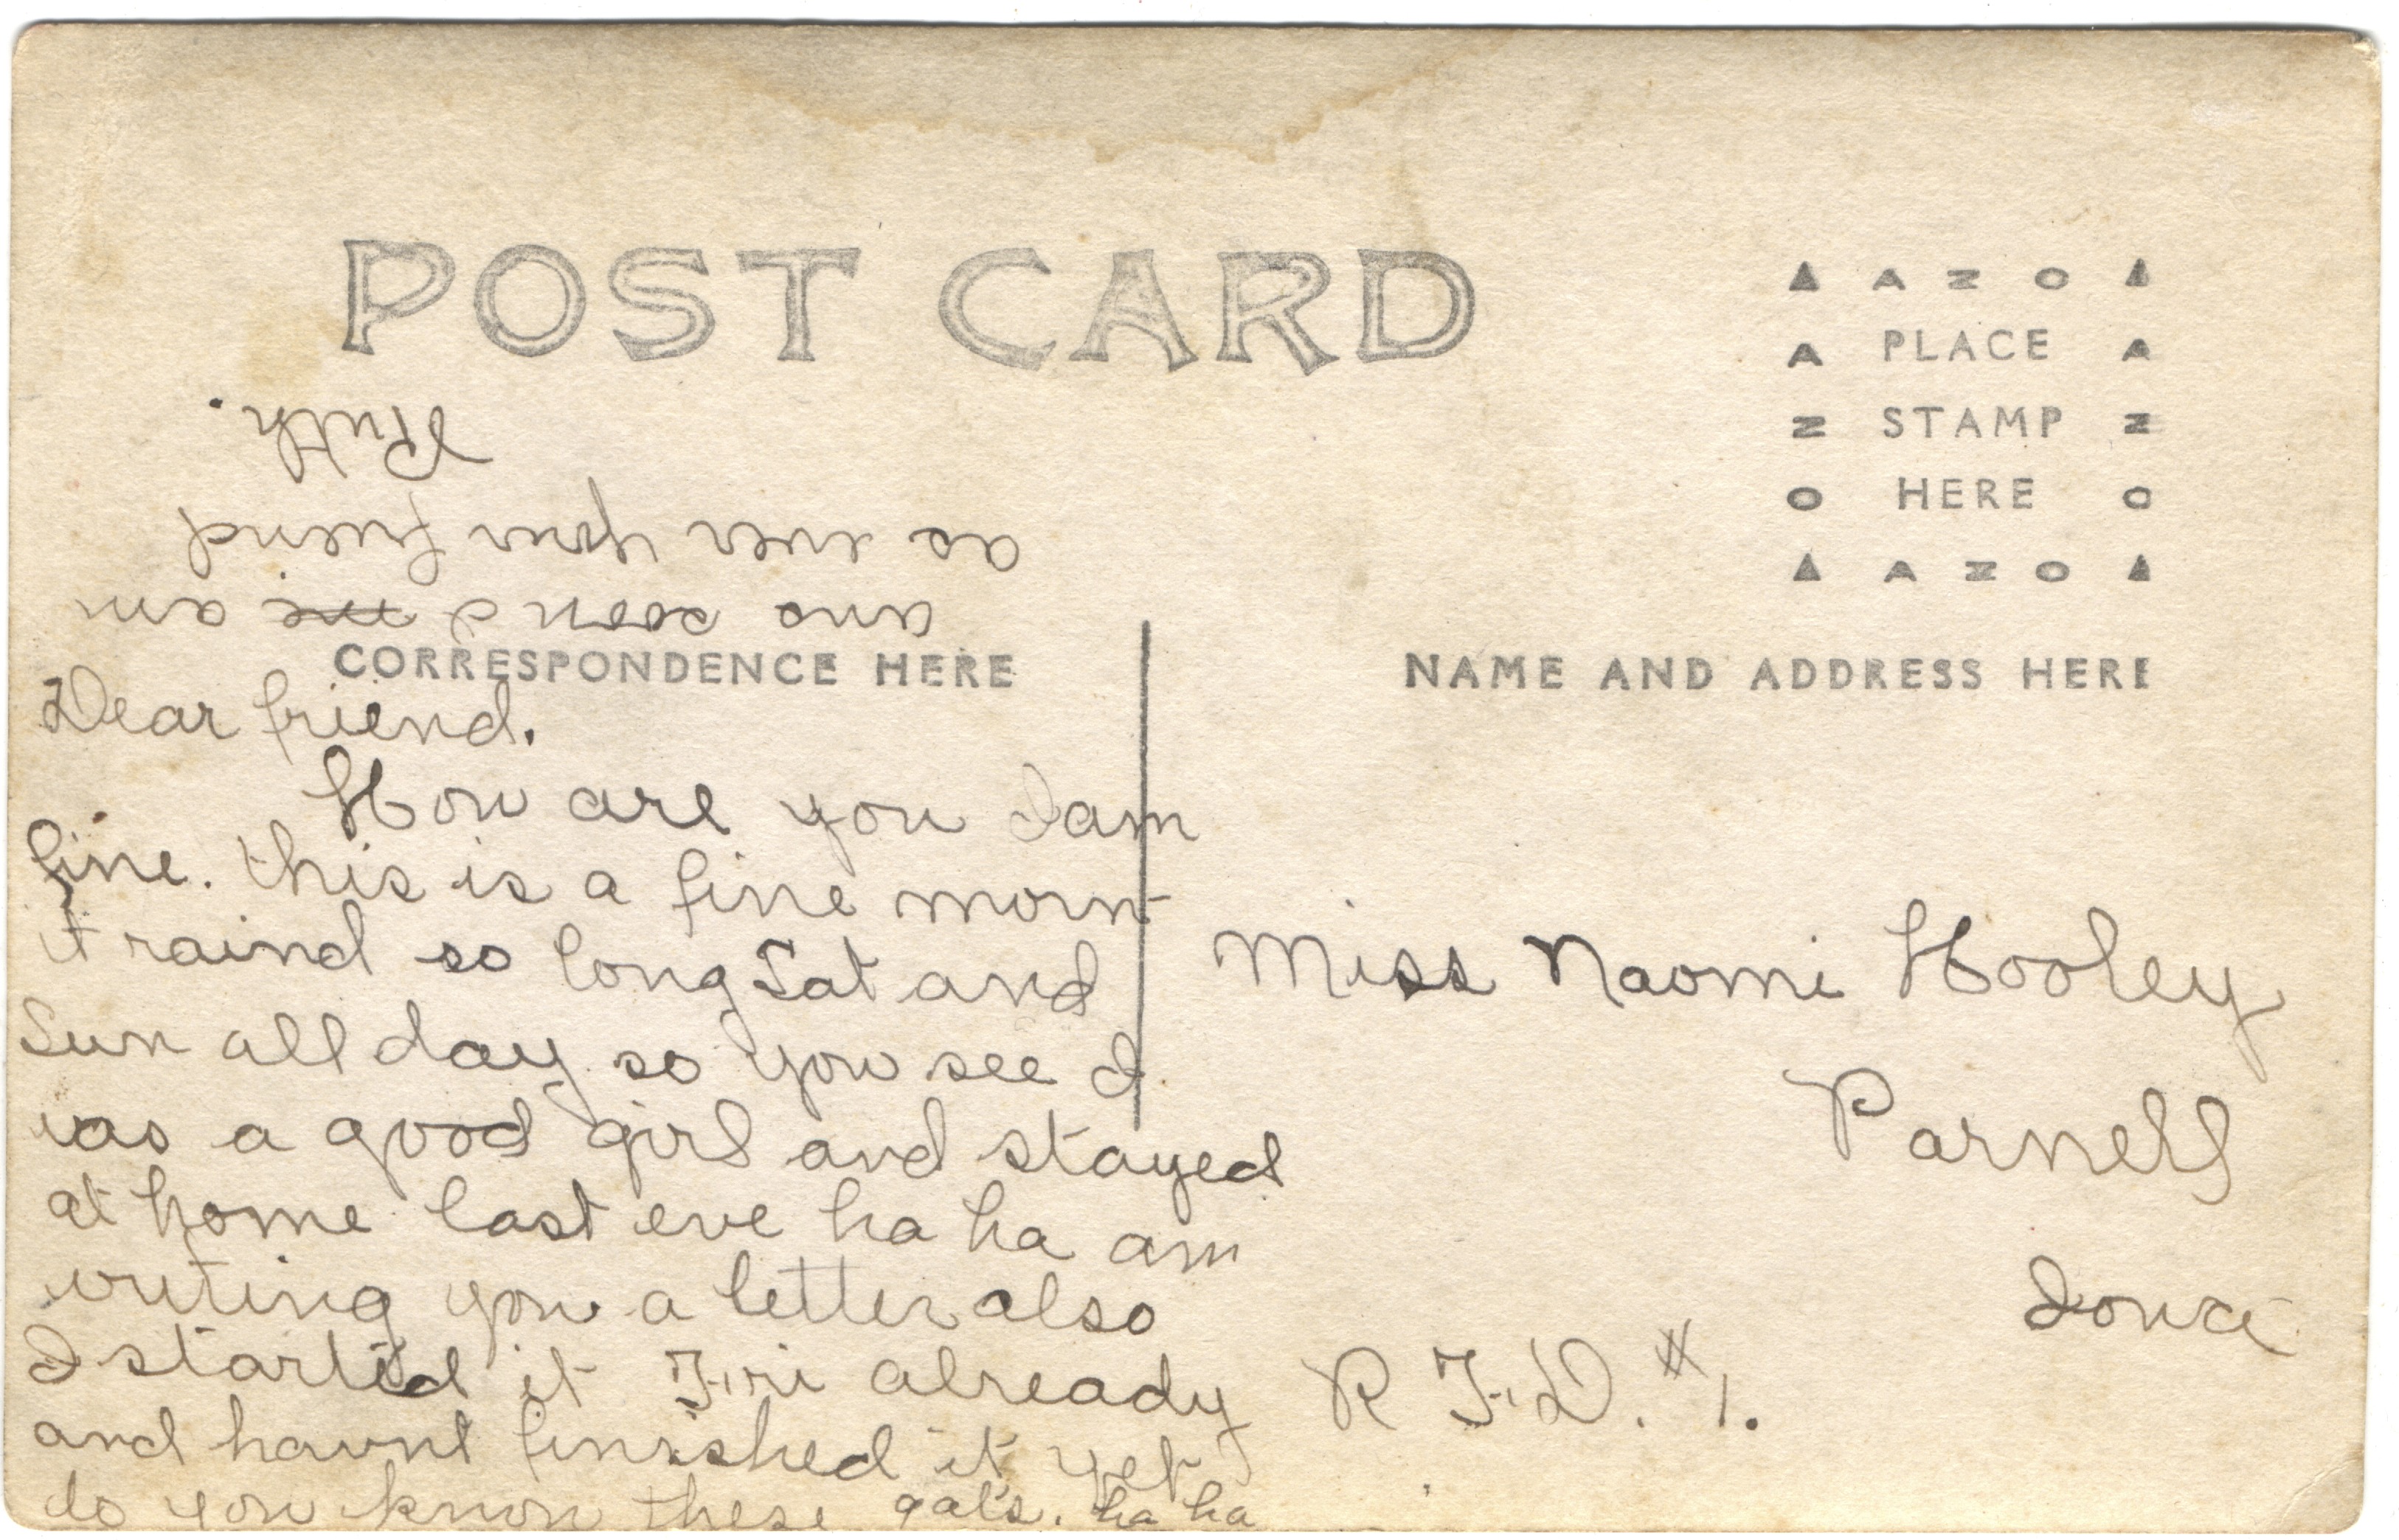 POST CARD
AZO
A PLACE A
Z STAMP Z
O HERE O
AZO
CORRESPONDENCE HERE
Dear friend.
How are you I am
fine. this is a fine morn
it raind so long Sat and
Sun all day so you see I
was a good girl and stayed
at home last eve ha ha am
writing you a letter also
I started it Fri already
and havnt finished it yet
do you know these gals. ha ha
ans soon I am
as ever your friend
Ruth.
NAME AND ADDRESS HERE
Miss Naomi Hooley
Parnell
Iowa
R F.D. #1.